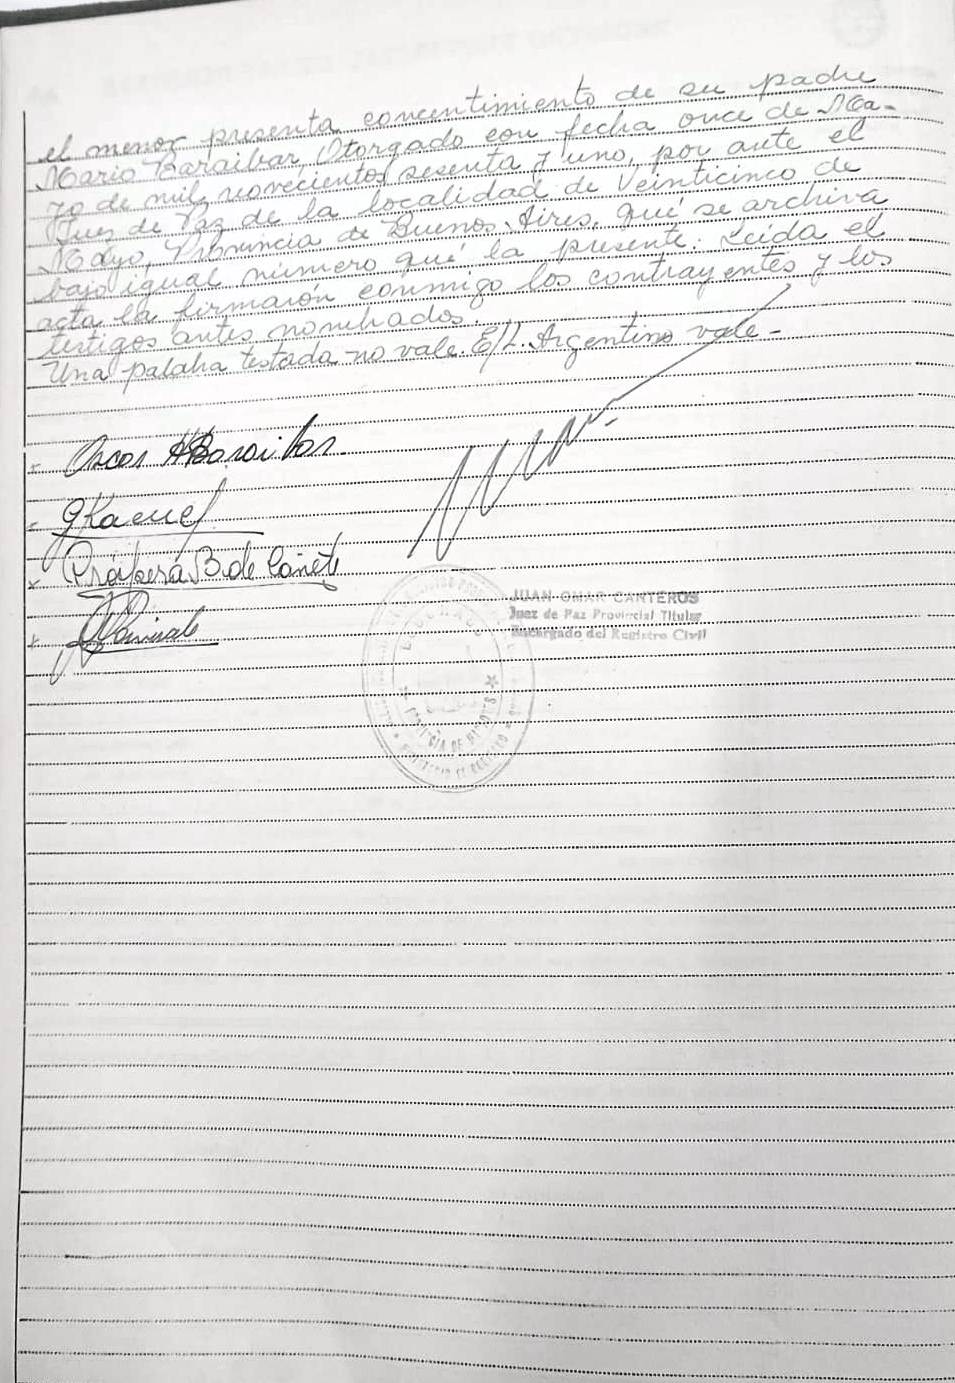 el menor presenta concentimiento de su padre
Mario Baraibar, Otorgado con fecha once de Ma-
yo de mil novecientos sesenta y uno, por ante el
Juez de Paz de la localidad de Veinticinco de
Mayo, Provincia de Buenos Aires, qué se archiva
bajo igual número qué la presente. Leída el
acta la firmarón conmigo los contrayentes y los
testigos antes nombrados.
Una palaba testada no vale. E/L. Argentino vale-
Oscar A Baraibar
Próspera B de Cañete
JUAN OMAR CANTEROS
Juez de Paz Provincial Titular
Encargado del Registro Civil
PROVINCIA DE MISIONES